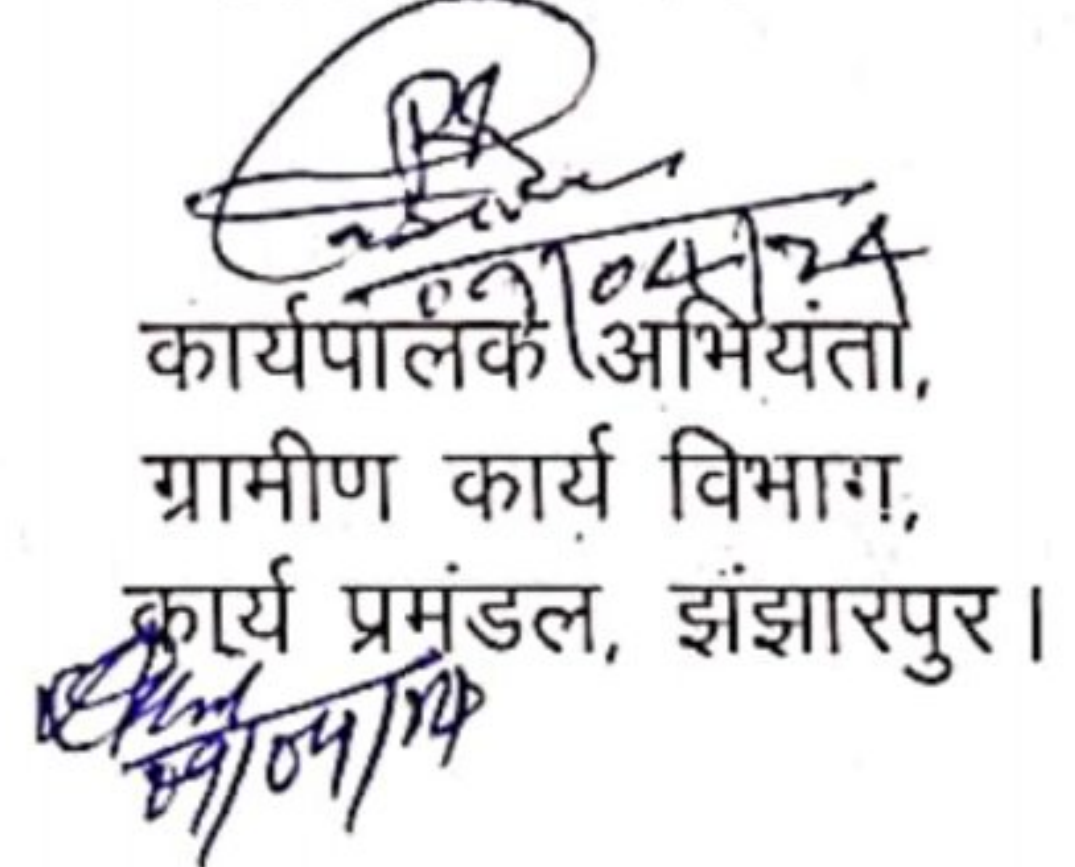 09/04/24
कार्यपालक अभियंता,
ग्रामीण कार्य विभाग,
कार्य प्रमंडल, झंझारपुर।
09/04/24